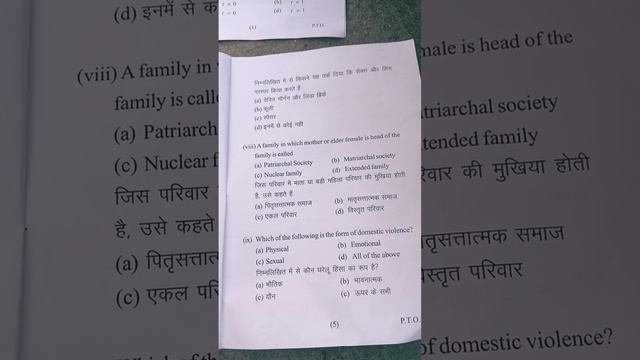 (d) इनमें से क
r ≠ 0 (b) r ≠ 1
r = 0 (d) r ≠ 1
(1) P.T.O.
निम्नलिखित में से किसने यह तर्क दिया कि सेक्स और लिंग
परस्पर क्रिया करते हैं
(a) डेविड मॉर्गन और लिंडा ब्रिके
(b) कूली
(c) स्पेंसर
(d) इनमें से कोई नहीं
(viii) A family in which mother or elder female is head of the
family is called
(a) Patriarchal Society (b) Matriarchal society
(c) Nuclear family (d) Extended family
जिस परिवार में माता या बड़ी महिला परिवार की मुखिया होती
है, उसे कहते हैं
(a) पितृसत्तात्मक समाज (b) मातृसत्तात्मक समाज
(c) एकल परिवार (d) विस्तृत परिवार
(ix) Which of the following is the form of domestic violence?
(a) Physical (b) Emotional
(c) Sexual (d) All of the above
निम्नलिखित में से कौन घरेलू हिंसा का रूप है?
(a) भौतिक (b) भावनात्मक
(c) यौन (c) ऊपर के सभी
(5) P.T.O.
(viii) A family in
family is calle
(a) Patriarch
(c) Nuclear f
जिस परिवार
है, उसे कहते
(a) पितृसत्तात्म
(c) एकल परि
male is head of the
triarchal society
tended family
रवार की मुखिया होती
तृसत्तात्मक समाज
स्तृत परिवार
of domestic violence?